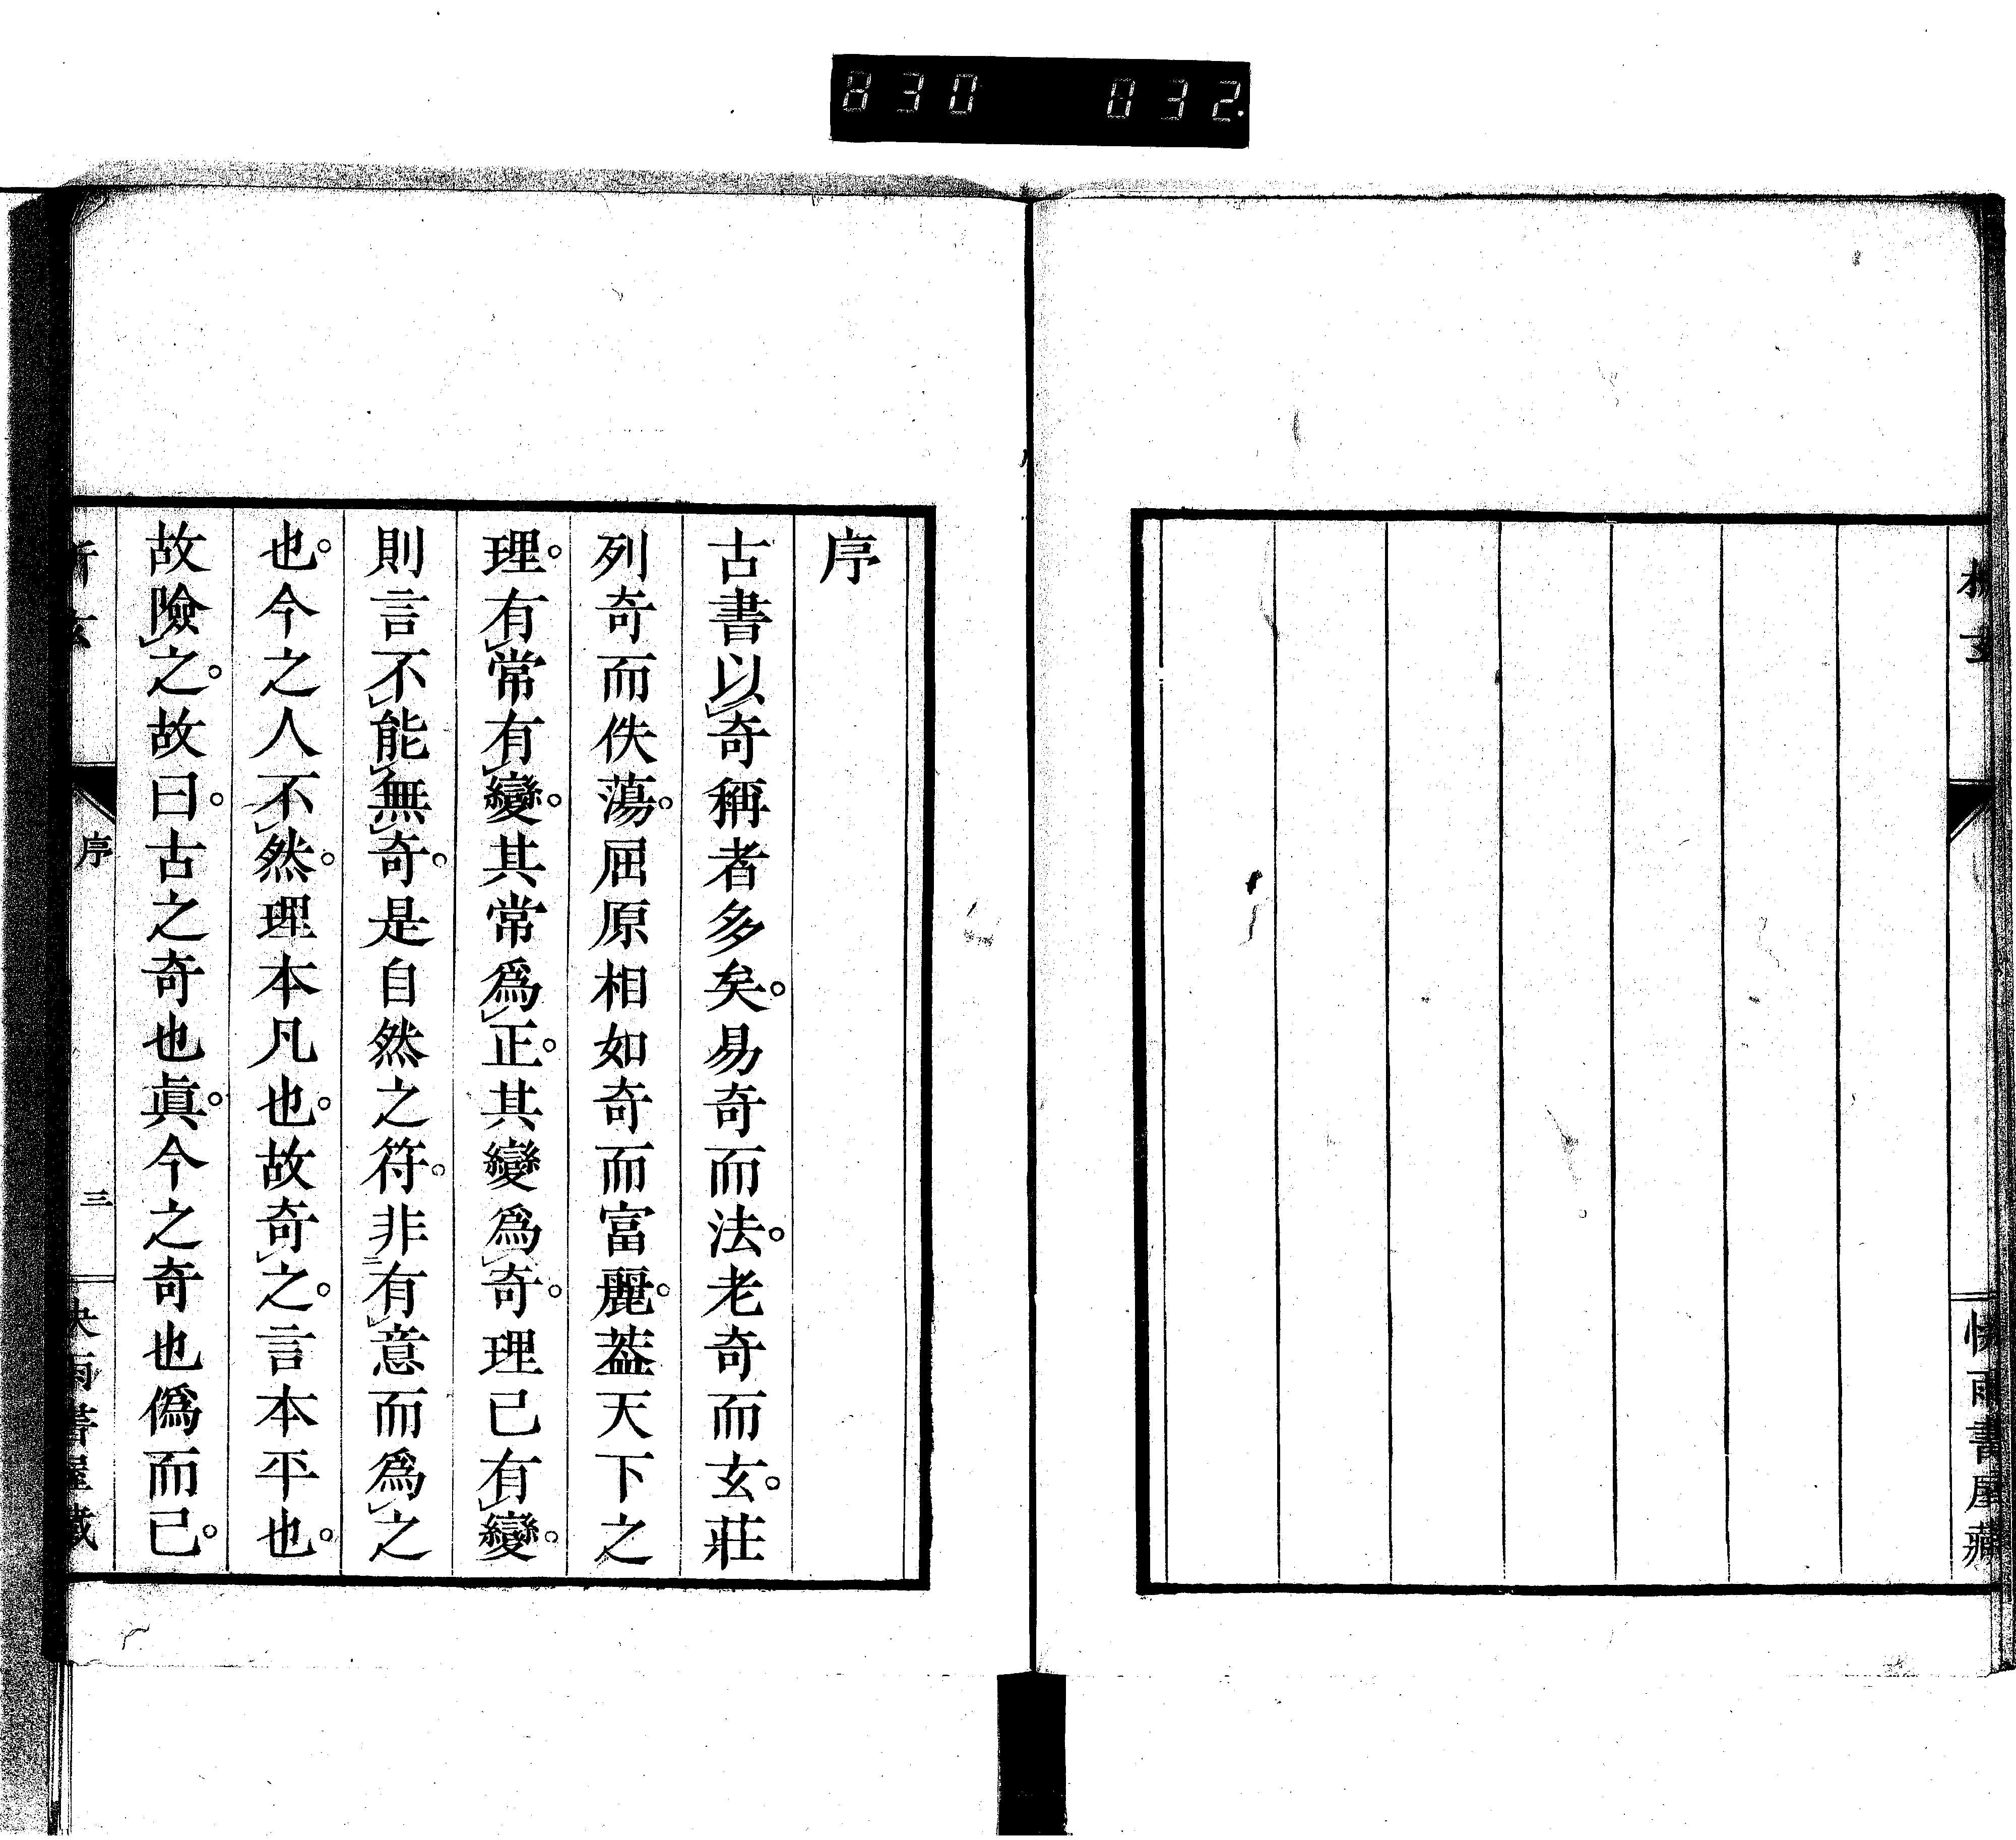 830 032.
玄
快雨書屋藏
序
古書以㆑奇稱者多矣。易奇而法。老奇而玄。莊
列奇而佚蕩。屈原相如奇而富麗。葢天下之
理。有㆑常有㆑變。其常爲㆑正。其變爲㆑奇。理已有㆑變。
則言不㆑能㆑無㆑奇。是自然之符。非㆘有㆑意而爲㆑之
也。今之人不㆑然。理本凡也。故奇㆑之。言本平也。
故險㆑之。故曰。古之奇也眞。今之奇也僞而已。
序 三
快雨書屋藏